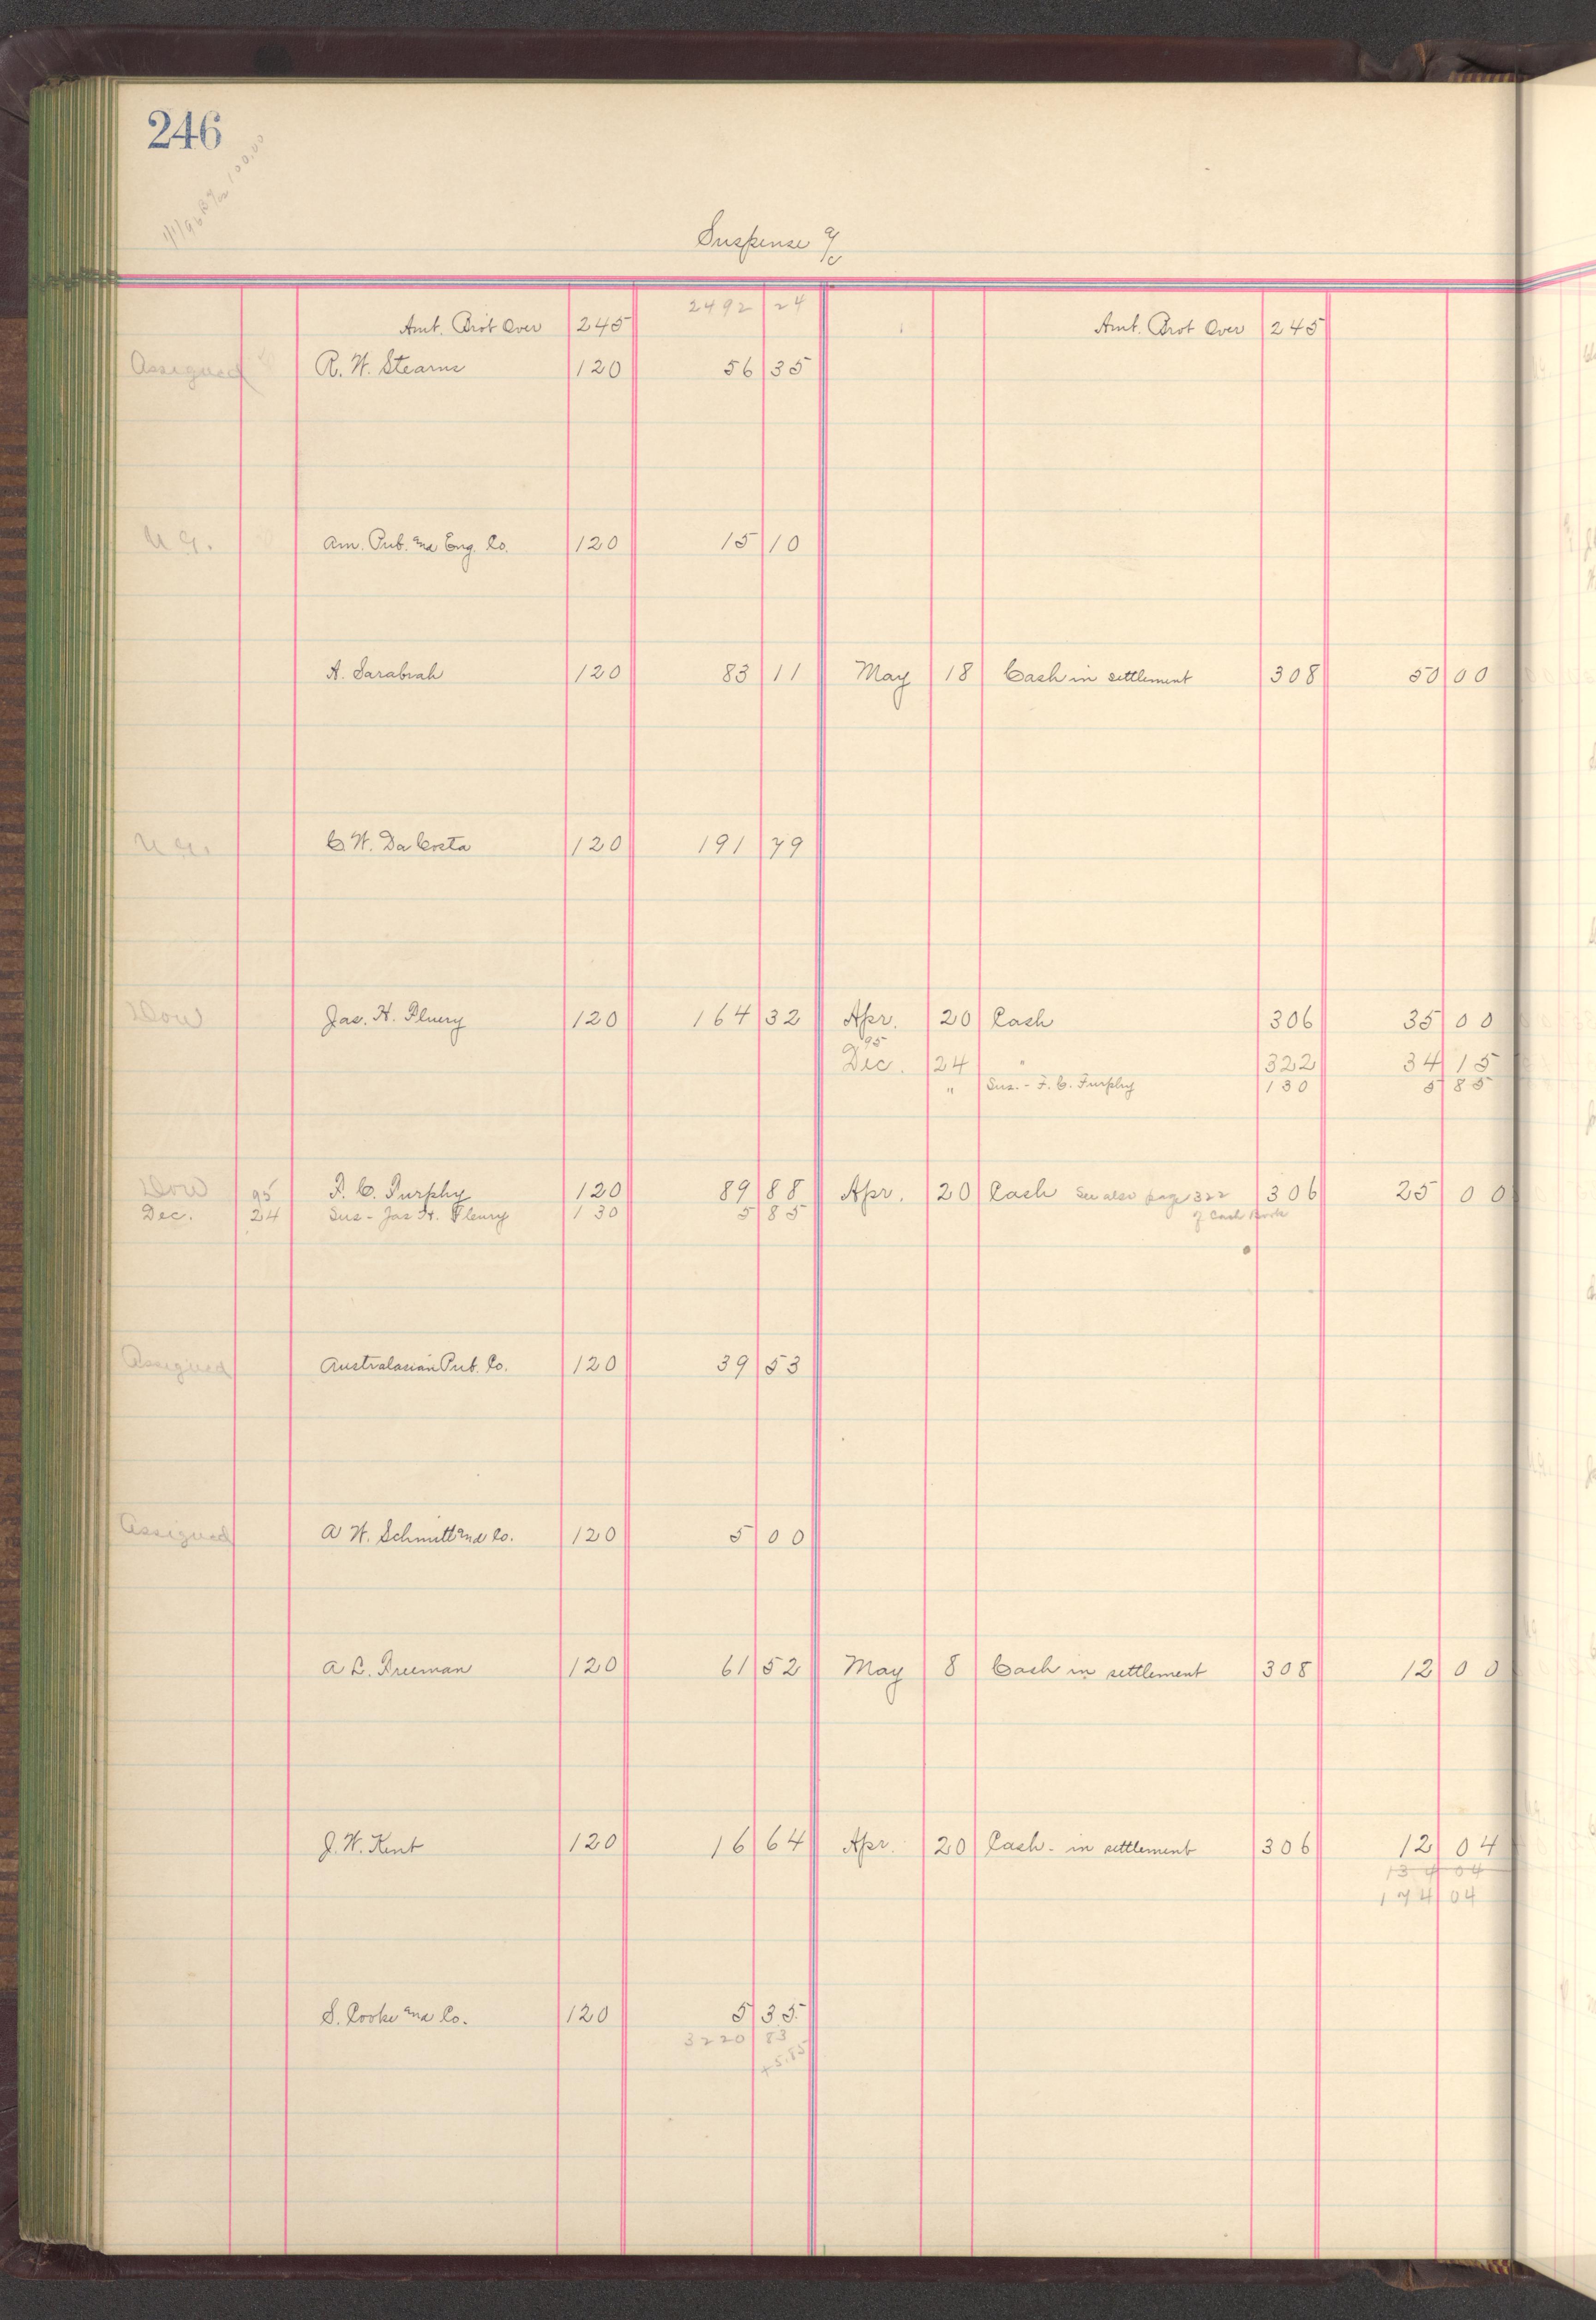 246
1/1/96 100.00
Suspense a/c
2492 24
Amt. Brot Over 245 Amt. Brot Over 245
Assigned R. W. Stearns 120 56 35
N.G. Am. Pub. and Eng. Co. 120 15 10
A. Sarabrah 120 83 11 May 18 Cash in settlement 308 50 00
N.G. C. W. Da Costa 120 191 79
Dow Jas. H. Fluery 120 164 32 Apr. 20 Cash 306 35 00
95
Dec. 24 " 322 34 15
" Sus. - F. C. Furphy 130 5 85
Dow 95 F. C. Furphy 120 89 88 Apr. 20 Cash See also page 322 306 25 00
Dec. 24 Sus - Jas H. Fleury 130 5 85 of Cash Book
Assigned Australasian Pub. Co. 120 39 53
Assigned A W. Schmitt and Co. 120 5 00
A L. Freeman 120 61 52 May 8 Cash in settlement 308 12 00
J. W. Kent 120 16 64 Apr. 20 Cash - in settlement 306 12 04
134 04
174 04
S. Cooke and Co. 120 5 35
3220 83
+5.85